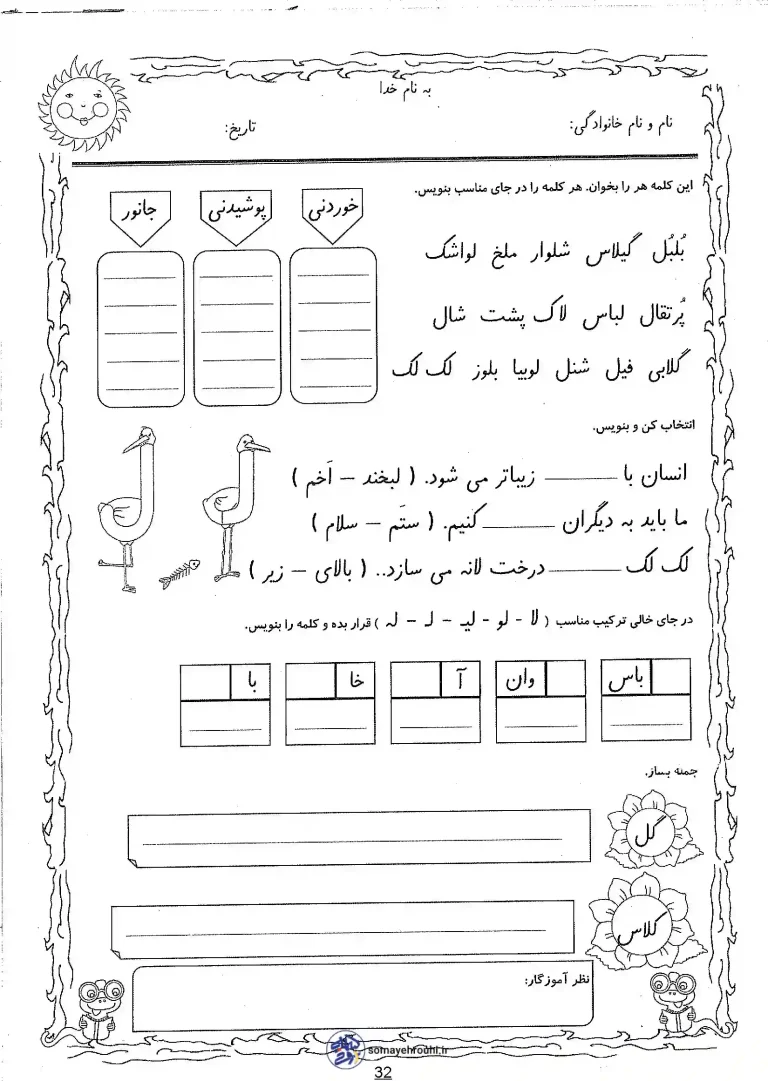 به نام خدا
نام و نام خانوادگی: تاریخ:
این کلمه هر را بخوان. هر کلمه را در جای مناسب بنویس.
خوردنی پوشیدنی جانور
بُلبُل گیلاس شلوار ملخ لواشک
پُرتقال لباس لاک پشت شال
گلابی فیل شنل لوبیا بلوز لک لک
انتخاب کن و بنویس.
انسان با ــــــــ زیباتر می شود. ( لبخند – اَخم )
ما باید به دیگران ــــــــ کنیم. ( ستَم – سلام )
لک لک ــــــــ درخت لانه می سازد.. ( بالای – زیر )
در جای خالی ترکیب مناسب ( لا - لو - لیـ - لـ - له ) قرار بده و کلمه را بنویس.
باس وان آ خا با
جمله بساز.
گل
کلاس
نظر آموزگار:
somayehrouhi.ir
32